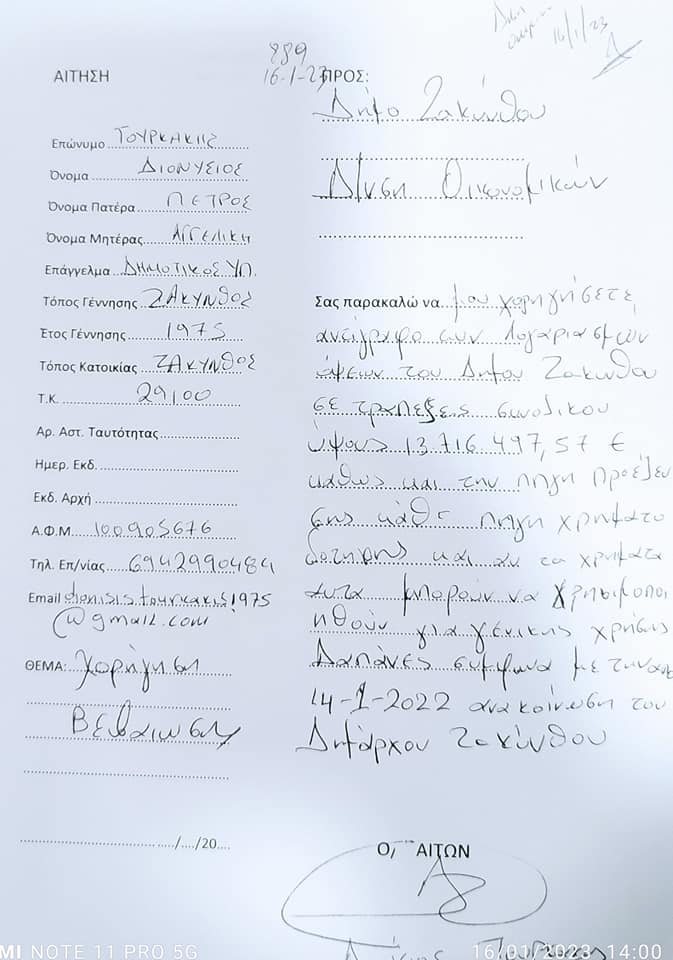 16/1/23
889
16-1-23
ΑΙΤΗΣΗ
Επώνυμο ΤΟΥΡΚΑΚΗΣ
Όνομα ΔΙΟΝΥΣΙΟΣ
Όνομα Πατέρα ΠΕΤΡΟΣ
Όνομα Μητέρας ΑΓΓΕΛΙΚΗ
Επάγγελμα ΔΗΜΟΤΙΚΟΣ ΥΠ.
Τόπος Γέννησης ΖΑΚΥΝΘΟΣ
Έτος Γέννησης 1975
Τόπος Κατοικίας ΖΑΚΥΝΘΟΣ
Τ.Κ. 29100
Αρ. Αστ. Ταυτότητας
Ημερ. Εκδ.
Εκδ. Αρχή
Α.Φ.Μ. 100905676
Τηλ. Επ/νίας 6942990484
Email dionisis.tourkakis1975
@gmail.com
ΘΕΜΑ: Χορήγηση
Βεβαιωση
/..../20....
ΠΡΟΣ:
Δήμο Ζακύνθου
Δ/νση Οικονομικών
Σας παρακαλώ να μου χορηγήσετε
αντίγραφο των λογαριασμών
όψεων του Δήμου Ζακύνθου
σε τράπεζες συνολικου
ύψους 13.716.497,57 €
καθως και την πηγη προέλευ
σης κάθε πηγη χρηματο
δοτησης και αν τα χρηματα
αυτα μπορούν να χρησιμοποι
ηθούν για γενικης χρησης
Δαπάνες συμφωνα με την απο
14-1-2022 ανακοίνωση του
Δημάρχου Ζακύνθου
Ο/ ΑΙΤΩΝ
MI NOTE 11 PRO 5G
16/01/2023 14:00